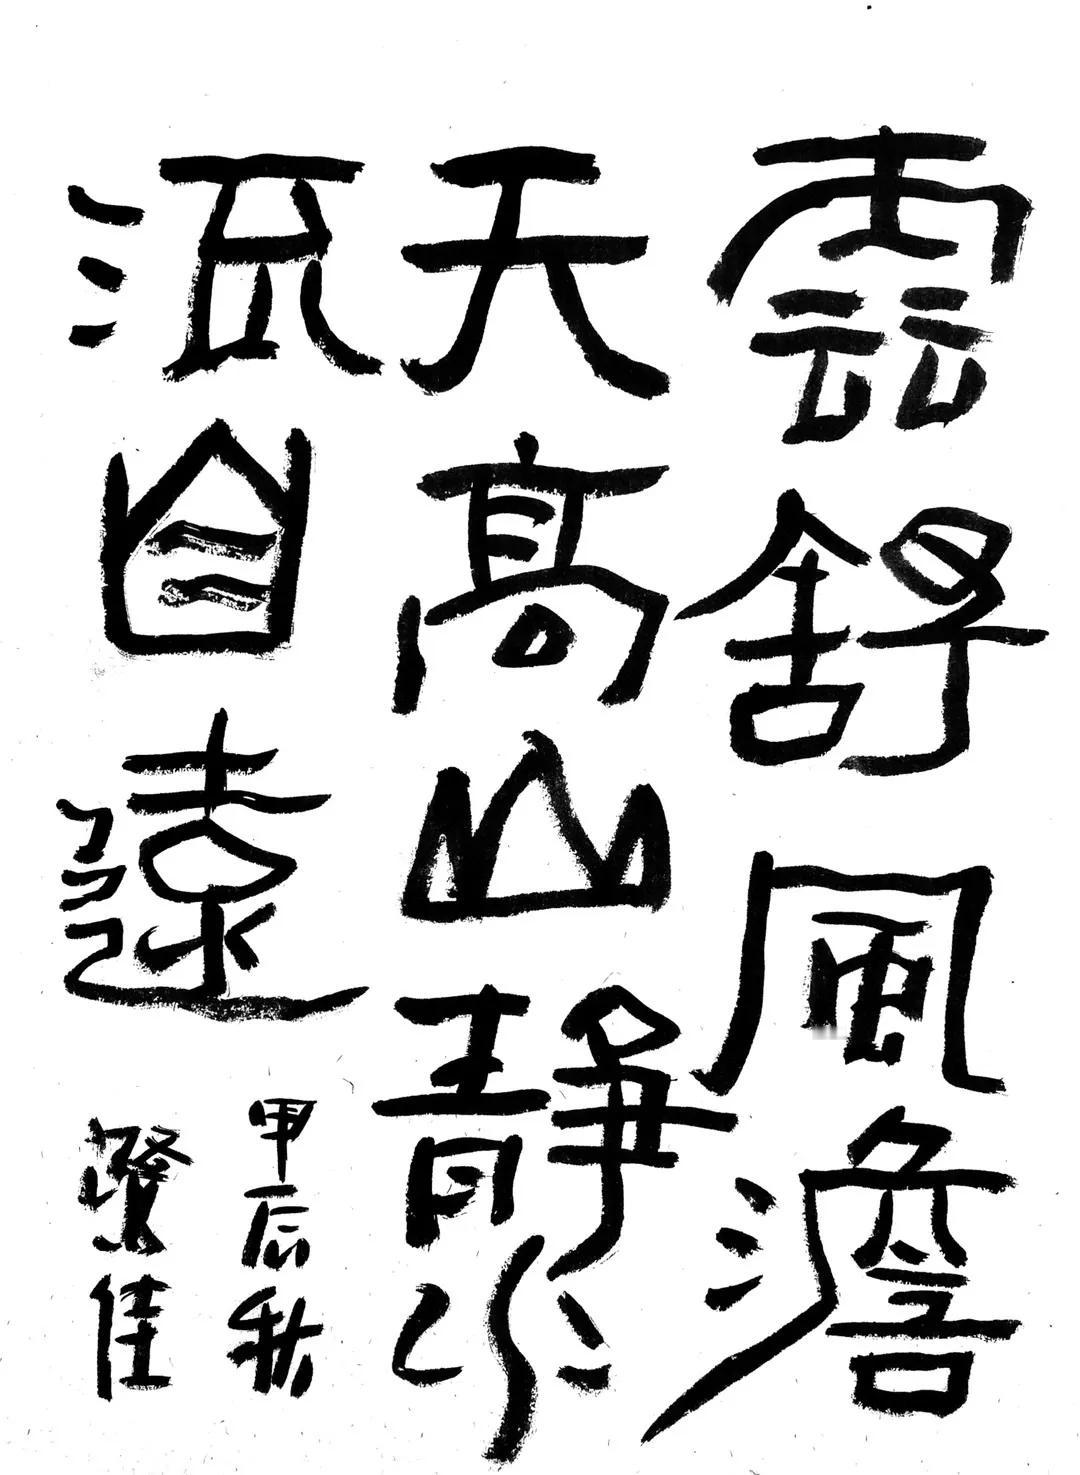 雲舒風澹
天高山靜水
流自遠
甲辰秋
佳